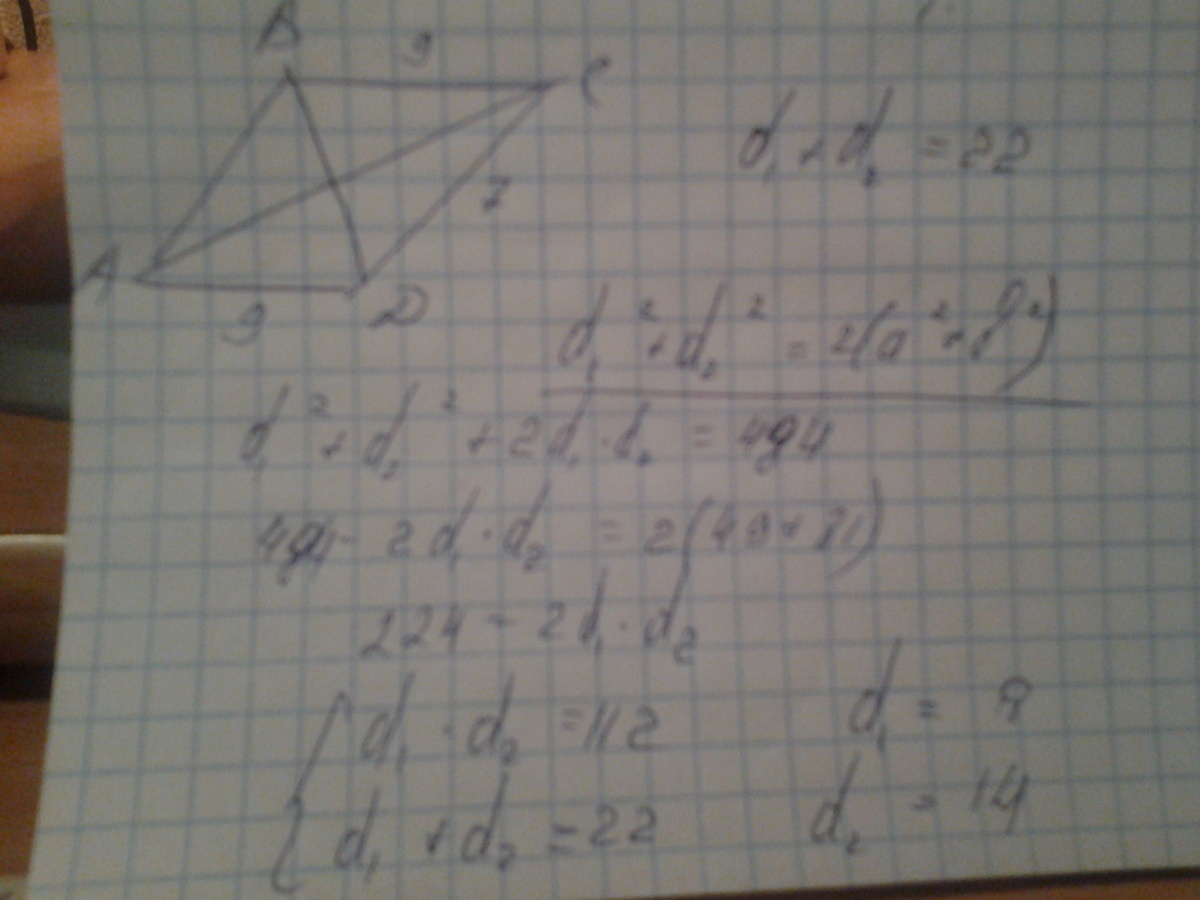 B 9 C
d₁ + d₂ = 22
7
A 9 D
d₁² + d₂² = 2(a² + b²)
d₁² + d₂² + 2d₁ · d₂ = 484
484 - 2d₁ · d₂ = 2(49 + 81)
224 = 2d₁ · d₂
d₁ · d₂ = 112
d₁ = 8
d₁ + d₂ = 22
d₂ = 14